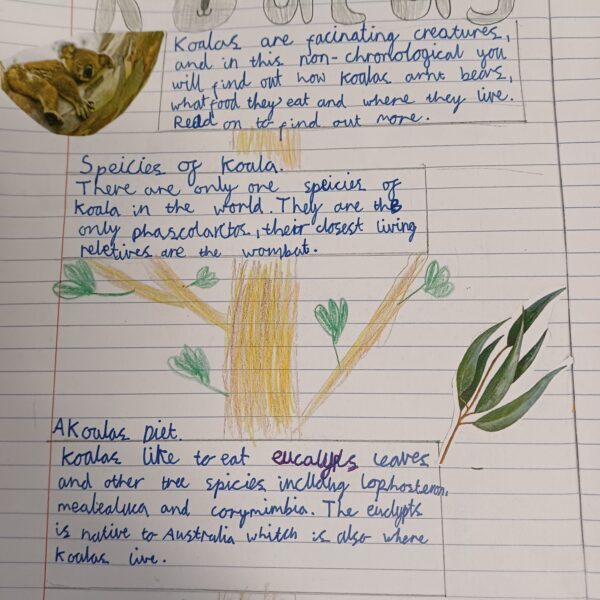 Koalas
Koalas are facinating creatures,
and in this non-chronological you
will find out how koalas arnt bears,
what food they eat and where they live.
Read on to find out more.
Speicies of koala.
There are only one speicies of
koala in the world. They are the
only phascolarctos, their closest living
reletives are the wombat.
A Koalas Diet.
Koalas like to eat eucalypts leaves
and other tree spicies inclding lophostemon,
mealealuca and corymimbia. The euclypts
is native to Australia whitch is also where
koalas live.